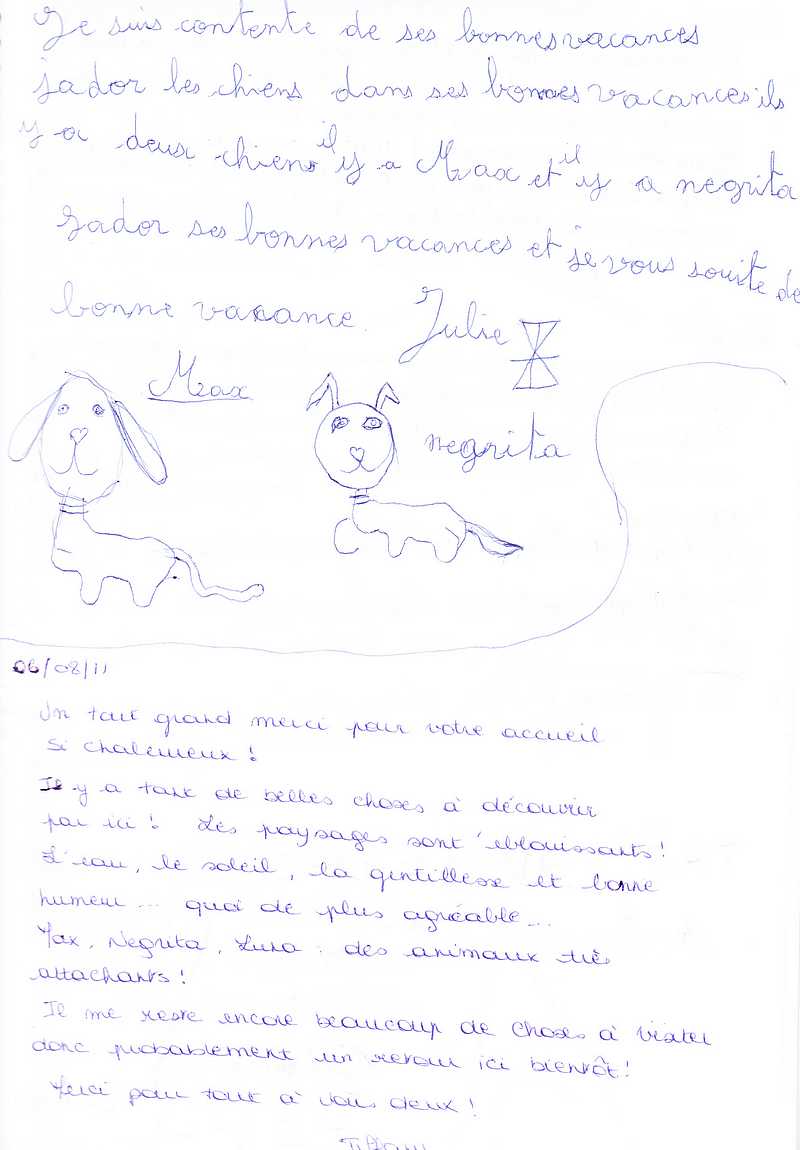 Je suis contente de ses bonnes vacances
j'ador les chiens dans ses bonnes vacances ils
y a deux chiens il y a Max et il y a negrita
J'ador ses bonnes vacances et je vous souite de
bonne vacance. Julie
Max
negrita
06/08/11
Un tout grand merci pour votre accueil
si chaleureux !
Il y a tant de belles choses à découvrir
par ici ! Les paysages sont éblouissants !
L'eau, le soleil, la gentillesse et bonne
humeur ... quoi de plus agréable ...
Max, Negrita, Luna : des animaux très
attachants !
Il me reste encore beaucoup de choses à visiter
donc probablement un retour ici bientôt !
Merci pour tout à vous deux !